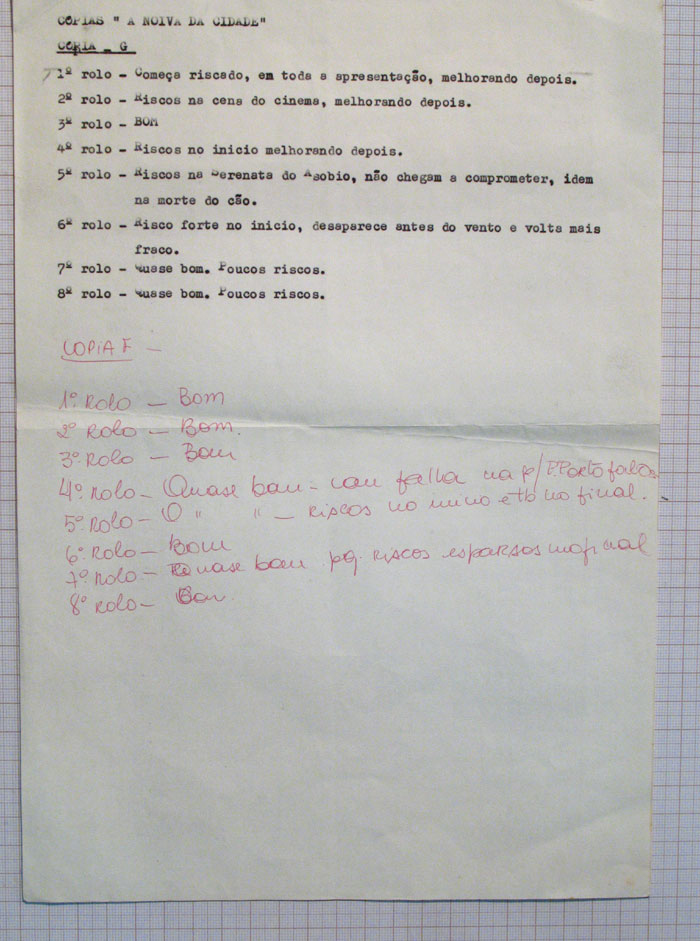 COPIAS " A NOIVA DA CIDADE"
COPIA - G
1º rolo - Começa riscado, em toda a apresentação, melhorando depois.
2º rolo - Riscos na cena do cinema, melhorando depois.
3º rolo - BOM
4º rolo - Riscos no inicio melhorando depois.
5º rolo - Riscos na Serenata do Asobio, não chegam a comprometer, idem
na morte do cão.
6º rolo - Risco forte no inicio, desaparece antes do vento e volta mais
fraco.
7º rolo - Quase bom. Poucos riscos.
8º rolo - Quase bom. Poucos riscos.
COPIA F -
1º Rolo - Bom
2º Rolo - Bom.
3º Rolo - Bom
4º Rolo - Quase bom - com falha na
5º Rolo - " " - riscos no inicio e no final.
6º Rolo - Bom
7º Rolo - Quase bom riscos esparsos no final
8º Rolo - Bom.